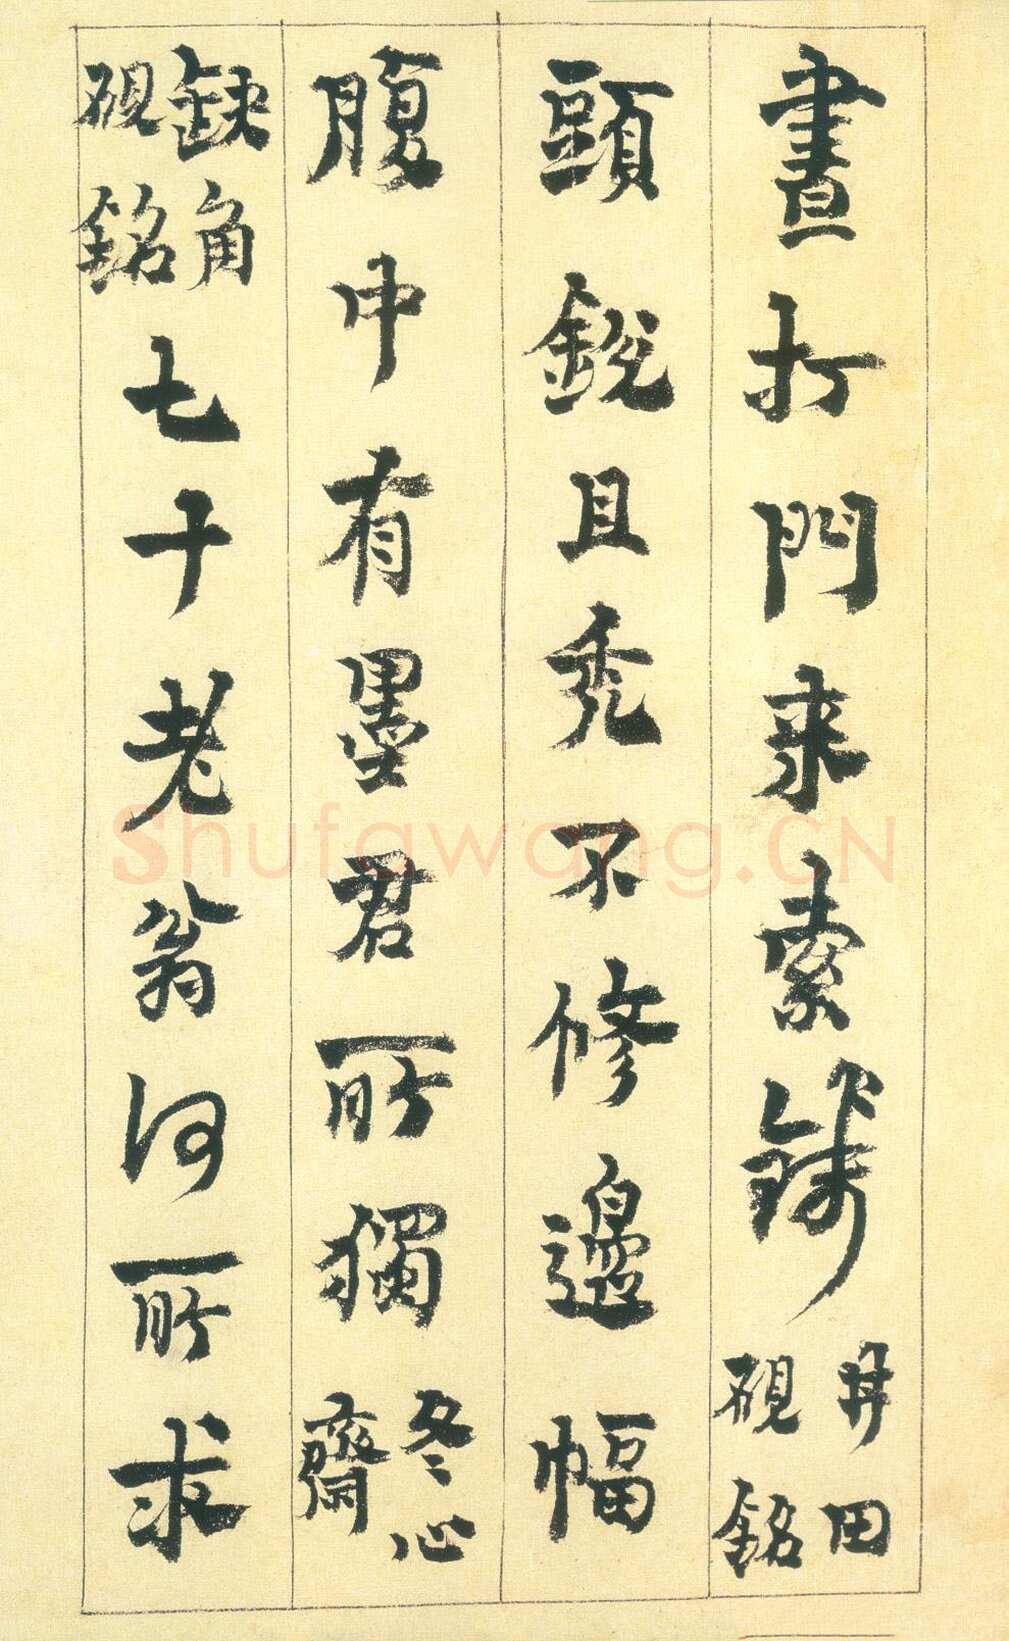 晝打門来索錢井田硯銘
頭銳且秃不修邊幅
腹中有墨君所獨冬心齋
缺角硯銘七十老翁何所求
Shufawang.CN